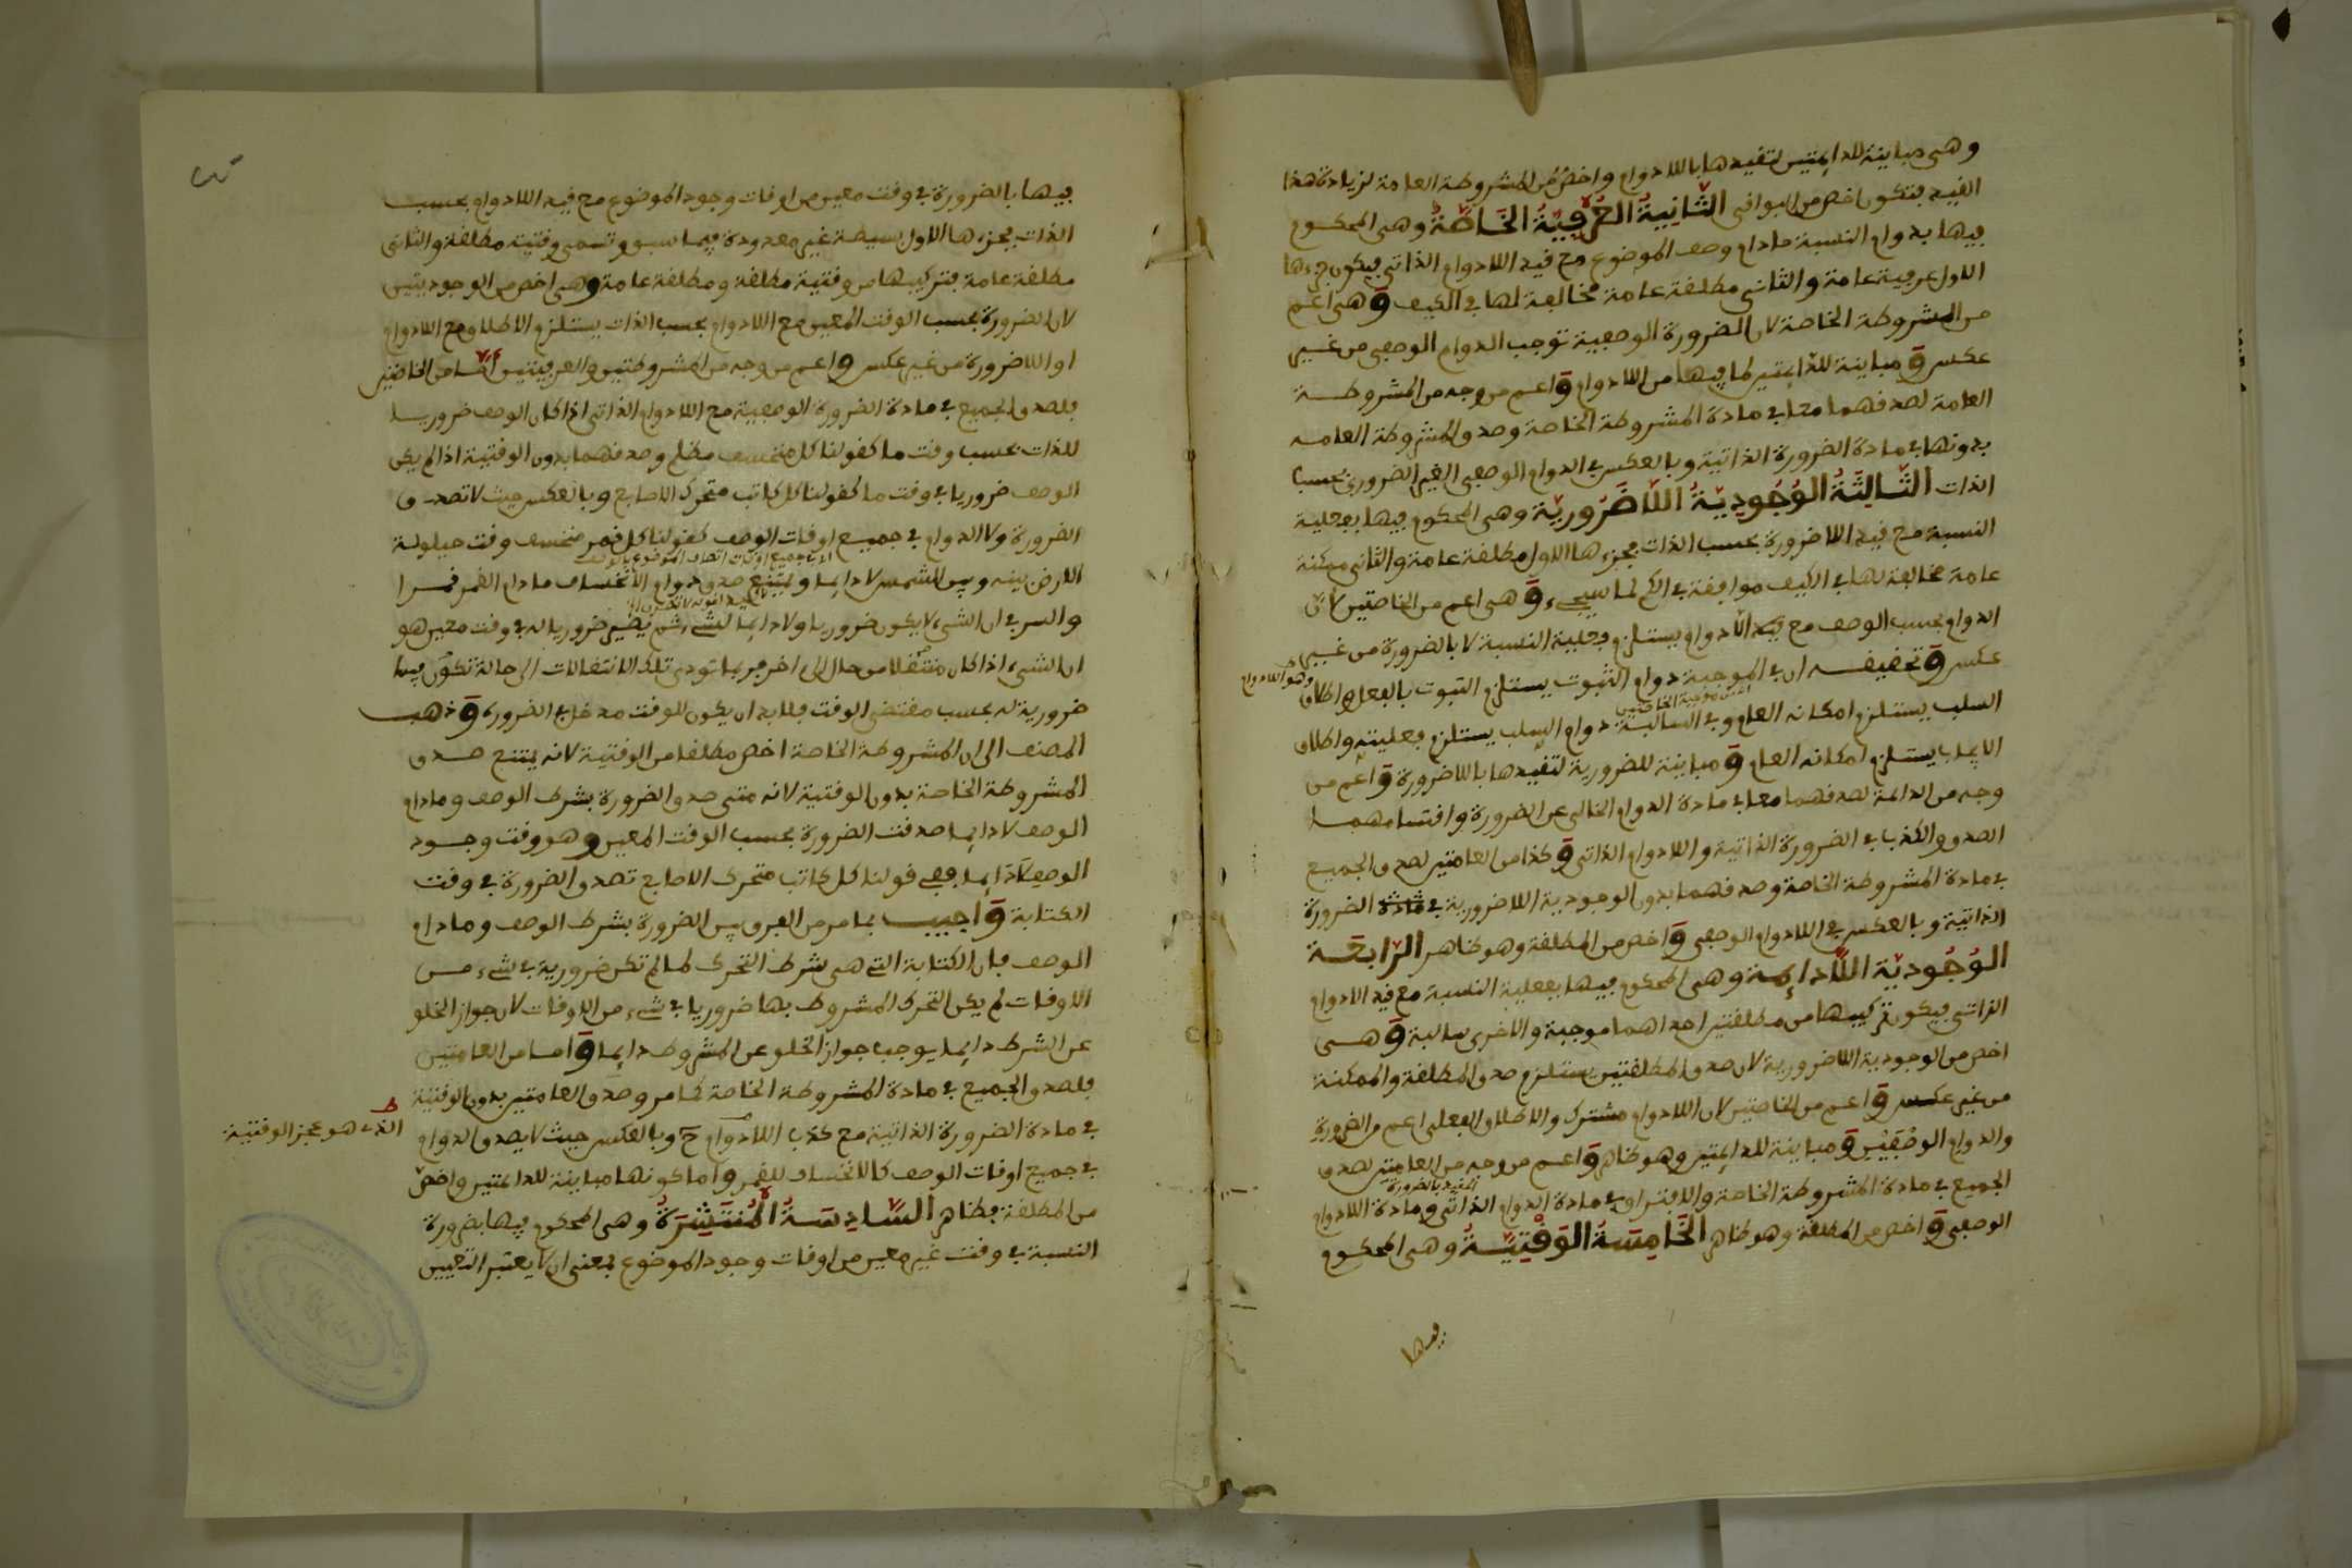 وهى مباينة للدايمتين لتقيدها باللادوام واخص من المشروطة العامة لزيادة هذا
القيد فتكون اخص من البواقى الثانية العرفية الخاصة وهى المحكوم
فيها بدوام النسبة مادام وصف الموضوع مع قيد اللادوام الذاتى فيكون جزءها
الاول عرفية عامة والثانى مطلقة عامة مخالفة لها فى الكيف وهى اعم
من المشروطة الخاصة لان الضرورة الوصفية توجب الدوام الوصفى من غير
عكس ومباينة للدايمتين لما فيها من اللادوام واعم من وجه من المشروطة
العامة لصدقهما معا فى مادة المشروطة الخاصة وصدق المشروطة العامه
بدونها فى مادة الضرورة الذاتية وبالعكس فى الدوام الوصفى الغير الضرورى بحسب
الذات الثالثة الوجودية اللاضرورية وهى المحكوم فيها بفعلية
النسبة مع قيد اللاضرورة بحسب الذات فجزءها الاول مطلقة عامة والثانى ممكنة
عامة مخالفة لها فى الكيف موافقة فى الكم لما سيجىء وهى اعم من الخاصتين لان
الدوام بحسب الوصف مع قيد اللادوام يستلزم فعلية النسبة لا بالضرورة من غير
عكس وتحقيقه ان فى الموجبة دوام الثبوت يستلزم الثبوت بالفعل واطلاق
وهو اللادوام
السلب يستلزم امكانه العام وفى السالبة دوام السلب يستلزم فعليته واطلاق
الايجاب يستلزم امكانه العام ومباينة للضرورية لتقيدها باللاضرورة واعم من
وجه من الدائمة لصدقهما معا فى مادة الدوام الخالى عن الضرورة واقتسامهما
الصدق والكذب فى الضرورة الذاتية واللادوام الذاتى وكذا من العامتين لصدق الجميع
فى مادة المشروطة الخاصة وصدقهما بدون الوجودية اللاضرورية فى مادة الضرورة
الذاتية وبالعكس فى اللادوام الوصفى واخص من المطلقة وهو ظاهر الرابعة
الوجودية اللادايمة وهى المحكوم فيها بفعلية النسبة مع قيد اللادوام
الذاتى فيكون تركيبها من مطلقتين احداهما موجبة والاخرى سالبة وهى
اخص من الوجودية اللاضرورية لان صدق المطلقتين يستلزم صدق المطلقة والممكنة
من غير عكس واعم من الخاصتين لان اللادوام مشترك والاطلاق الفعلى اعم من الضرورة
والدوام الوصفيين ومباينة للدايمتين وهو ظاهر واعم من وجه من العامتين لصدق
الجميع فى مادة المشروطة الخاصة والافتراق فى مادة الدوام الذاتى ومادة اللادوام
الوصفى واخص من المطلقة وهو ظاهر الخامسة الوقتية وهى المحكوم
فيها
فيها بالضرورة فى وقت معين من اوقات وجود الموضوع مع قيد اللادوام بحسب
الذات فجزءها الاول بسيطة غير معدودة فيما سبق وتسمى وقتية مطلقة والثانى
مطلقة عامة فتركيبها من وقتية مطلقة ومطلقة عامة وهى اخص من الوجوديتين
لان الضرورة بحسب الوقت المعين مع اللادوام بحسب الذات يستلزم الاطلاق مع اللادوام
او اللاضرورة من غير عكس واعم من وجه من المشروطتين والعرفيتين اما من الخاصتين
فلصدق الجميع فى مادة الضرورة الوصفية مع اللادوام الذاتى اذا كان الوصف ضروريا
للذات بحسب وقت ما كقولنا كل منخسف مظلم وصدقهما بدون الوقتية اذا لم يكن
الوصف ضروريا فى وقت ما كقولنا كل كاتب متحرك الاصابع وبالعكس حيث لا تصدق
الضرورة ولا الدوام فى جميع اوقات الوصف كقولنا كل قمر منخسف وقت حيلولة
اى فى جميع اوقات اتصاف الموضوع بالوصف
الارض بينه وبين الشمس لا دايما ويمتنع صدق دوام الانخساف مادام القمر قمرا
والسر فى ان الشىء لا يكون ضروريا ولا دايما لشىء ثم يصير ضروريا له فى وقت معين هو
ان الشىء اذا كان منتقلا من حال الى اخر فربما تودى تلك الانتقالات الى حالة تكون فيها
ضرورية له بحسب مقتضى الوقت فلا بد ان يكون للوقت مدخل فى الضرورة وذهب
المصنف الى ان المشروطة الخاصة اخص مطلقا من الوقتية لانه يمتنع صدق
المشروطة الخاصة بدون الوقتية لانه متى صدق الضرورة بشرط الوصف ومادام
الوصف لا دايما صدقت الضرورة بحسب الوقت المعين وهو وقت وجود
الوصف لا دايما ففى قولنا كل كاتب متحرك الاصابع تصدق الضرورة فى وقت
الكتابة واجيب بما مر من الفرق بين الضرورة بشرط الوصف ومادام
الوصف فان الكتابة التى هى شرط التحرك لما لم تكن ضرورية فى شىء من
الاوقات لم يكن التحرك المشروط بها ضروريا فى شىء من الاوقات لان جواز الخلو
عن الشرط دايما يوجب جواز الخلو عن المشروط دايما واما من العامتين
فلصدق الجميع فى مادة المشروطة الخاصة كما مر وصدق العامتين بدون الوقتية
فى مادة الضرورة الذاتية مع كذب اللادوام ح وبالعكس حيث لا يصدق الدوام
الذى هو عجز الوقتية
فى جميع اوقات الوصف كالانخساف للقمر واما كونها مباينة للدايمتين واخص
من المطلقة فظاهر السادسة المنتشرة وهى المحكوم فيها بضرورة
النسبة فى وقت غير معين من اوقات وجود الموضوع بمعنى ان لا يعتبر التعيين